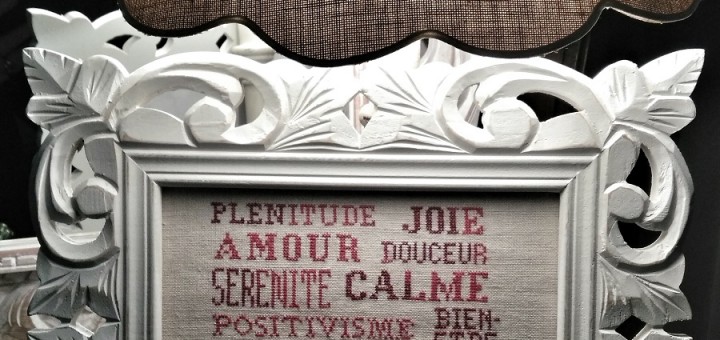 PLENITUDE JOIE
AMOUR DOUCEUR
SERENITE CALME
POSITIVISME BIEN-
ETRE